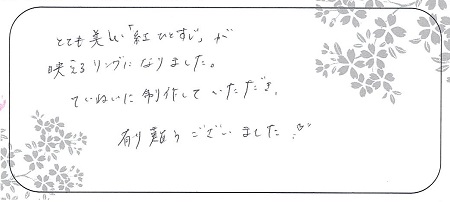 とても美しい「紅ひとすじ」が
映えるリングになりました。
ていねいに制作していただき、
有り難うございました